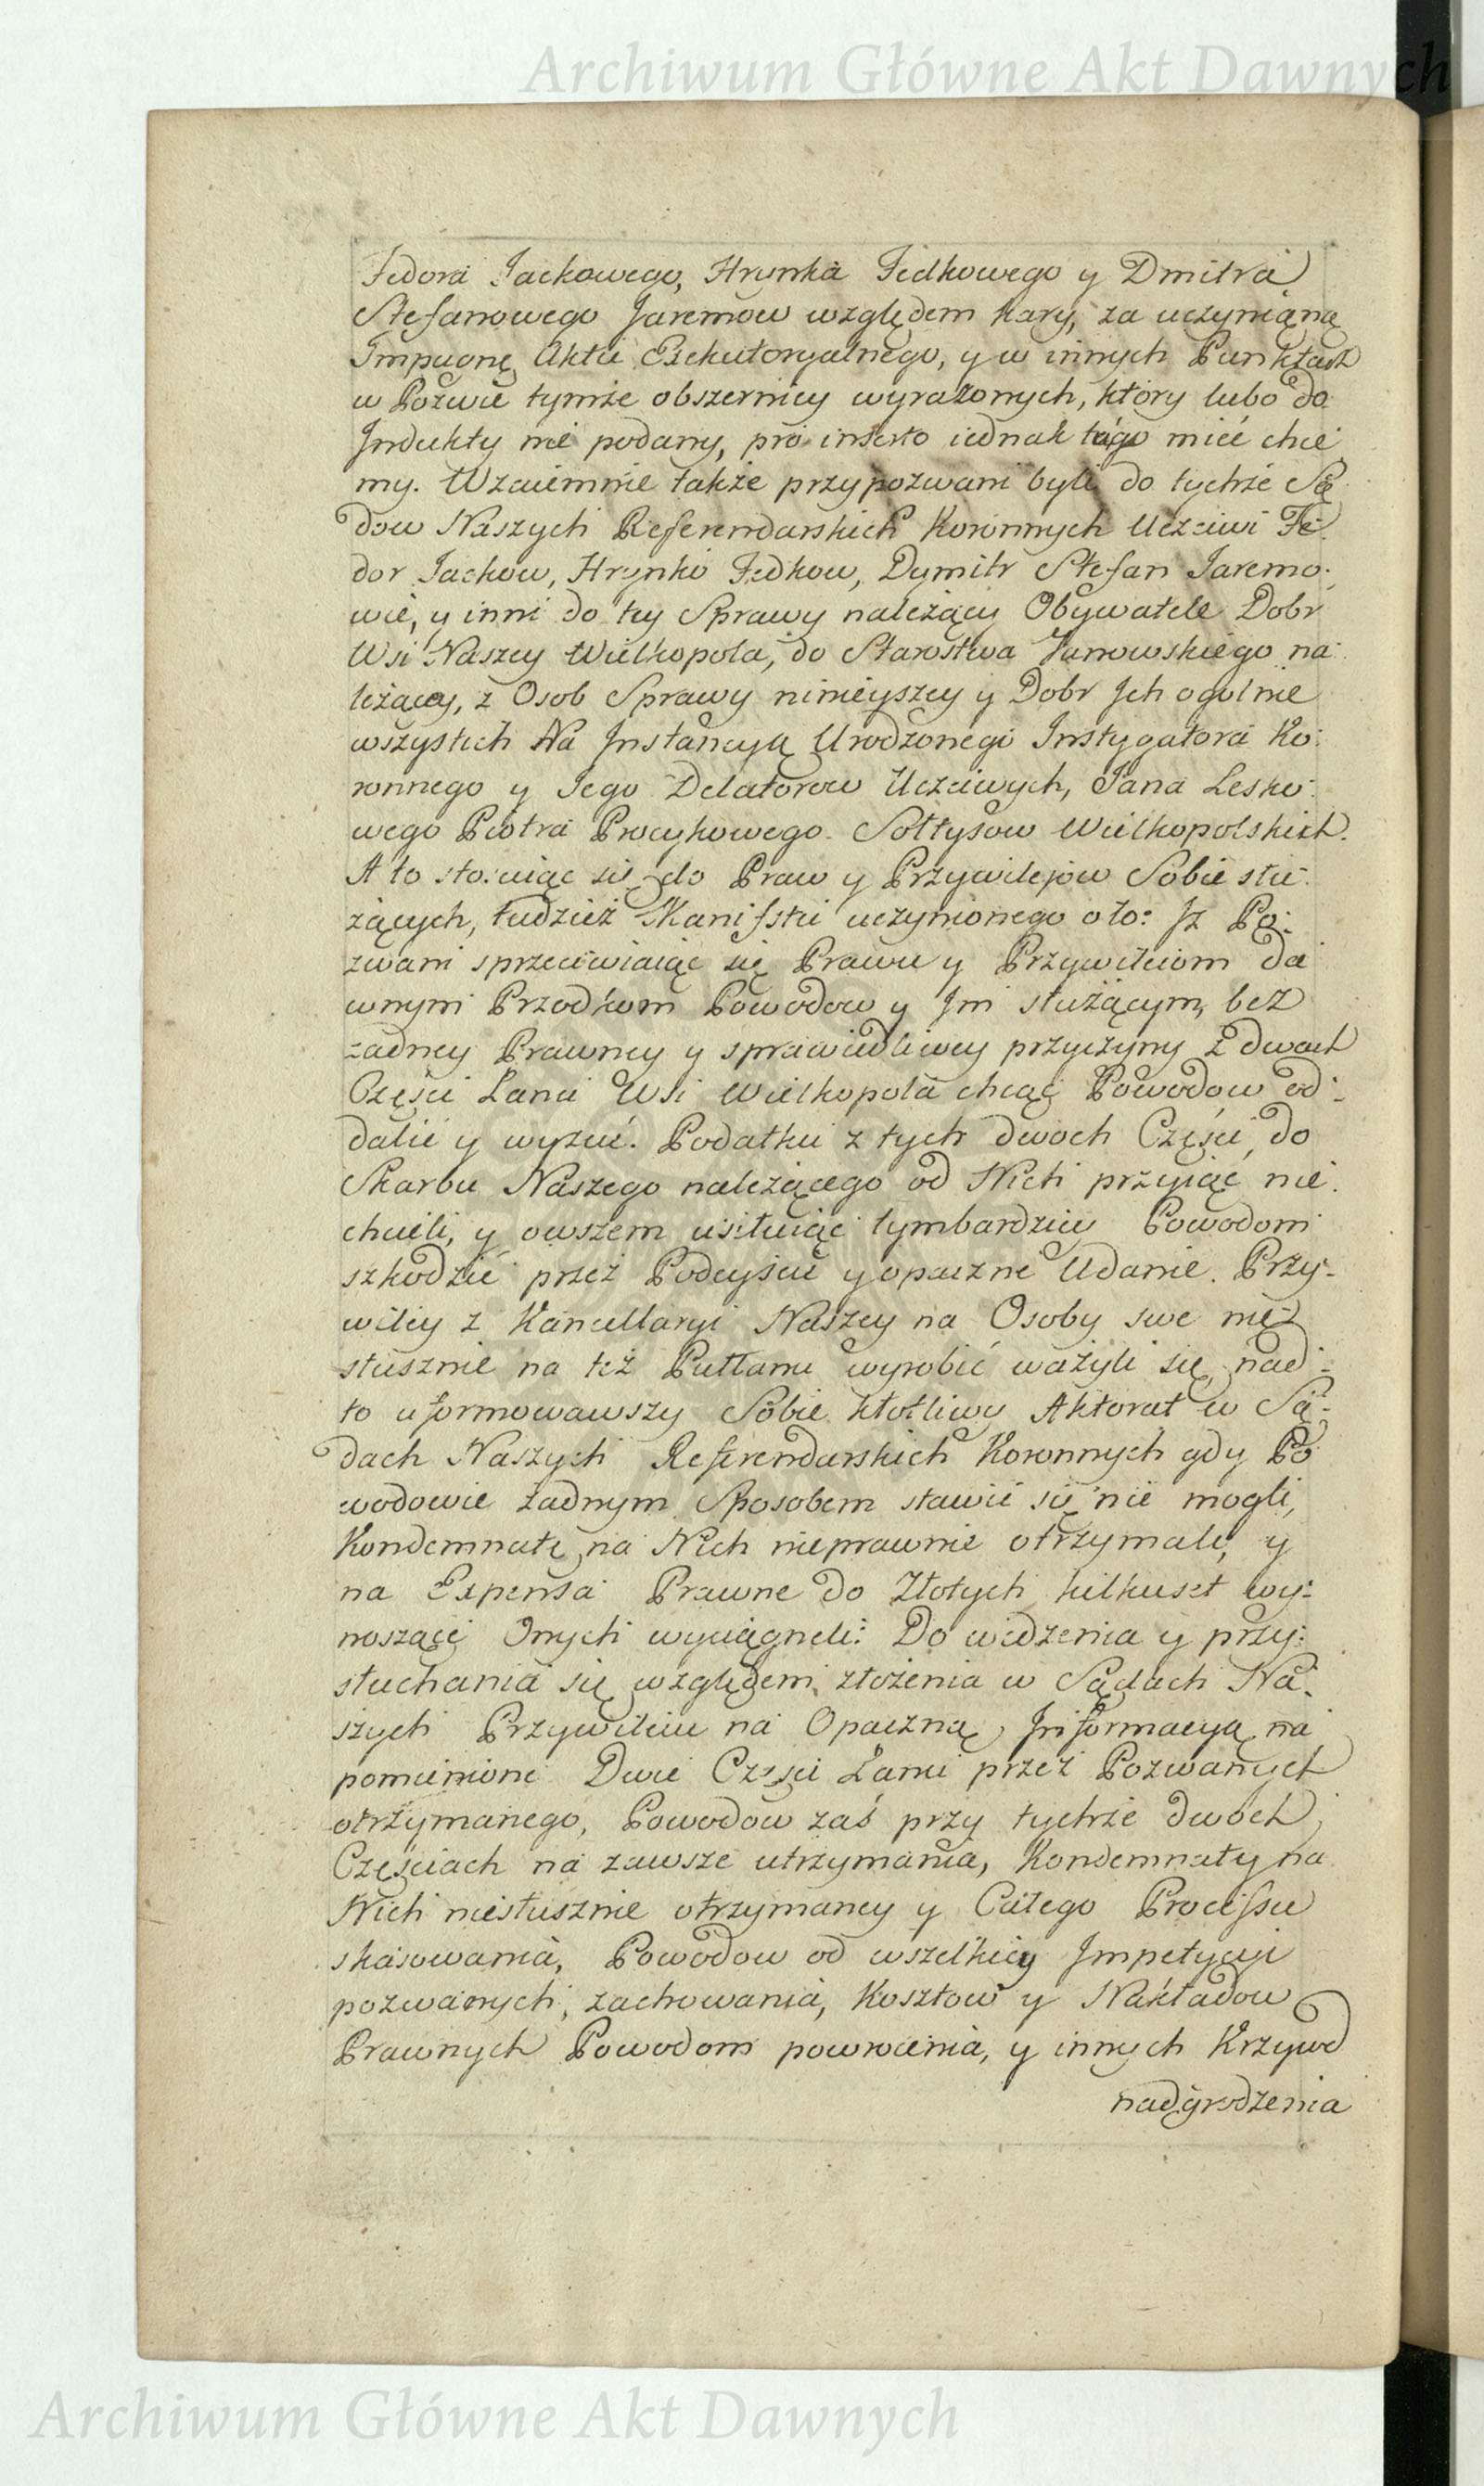 Archiwum Główne Akt Dawnych
Fedora Jackowego, Hrynka Fedkowego y Dmitra
Stefanowego Jaremow względem kary, za uczynioną
Impugnę Aktu Exekutoryalnego, y w innych Punktach
w Pozwie tymże obszerniey wyrażonych, który lubo do
Indukty nie podany, pro inserto iednak tego mieć chce
my. Wzaiemnie także przypozwani byli do tychże Są
dow Naszych Referendarskich Koronnych Uczciwi Fe:
dor Jackow, Hrynko Fedkow, Dymitr Stefan Jaremo:
wie, y inni do tey Sprawy należący Obywatele Dobr
Wsi Naszey Wielkopola, do Starostwa Janowskiego na:
leżącey, z Osob Sprawy ninieyszey y Dobr Jch ogolnie
wszystkich Na Jnstancyą Urodzonego Instygatora Ko:
ronnego y Jego Delatorow Uczciwych, Jana Lesko:
wego Piotra Procykowego Sołtysow Wielkopolskich.
A to stosuiąc się do Praw y Przywilejow Sobie słu:
żących, tudzież Manifestu uczynionego oto: Jż Po:
zwani sprzeciwiaiąc się Prawu y Przywileiom da
wnym Przodkom Powodow y Jm służącym, bez
żadney Prawney y sprawiedliwey przyczyny z dwoch
Części Łanu Wsi Wielkopola chcąc Powodow od:
dalić y wyzuć. Podatku z tych dwoch Części do
Skarbu Naszego należącego od Nich przyiąć nie
chcieli, y owszem usiłuiąc tymbardziey Powodom
szkodzić przez Podeyście y opaczne Udanie. Przy-
wiley z Kancellaryi Naszey na Osoby swe nie
słusznie na też Pułłanu wyrobić ważyli się, nad:
to uformowawszy Sobie kłotliwy Aktorat w Są:
dach Naszych Referendarskich Koronnych gdy Po
wodowie żadnym Sposobem stawić się nie mogli,
Kondemnatę na Nich nieprawnie otrzymali, y
na Expensa Prawne do Złotych kilkuset wy:
noszące Onych wyciągneli: Do widzenia y przy:
słuchania się względem złożenia w Sądach Na:
szych Przywileiu na Opaczną Jnformacyą na
pomienione Dwie Części Łanu przez Pozwanych
otrzymanego, Powodow zaś przy tychże dwoch
Częściach na zawsze utrzymania, Kondemnaty na
Nich niesłusznie otrzymaney y Całego Processu
skasowania, Powodow od wszelkiey Jmpetycyi
pozwanych, zachowania, Kosztow y Nakładow
Prawnych Powodom powrocenia, y innych Krzywd
nadgrodzenia
Archiwum Główne Akt Dawnych